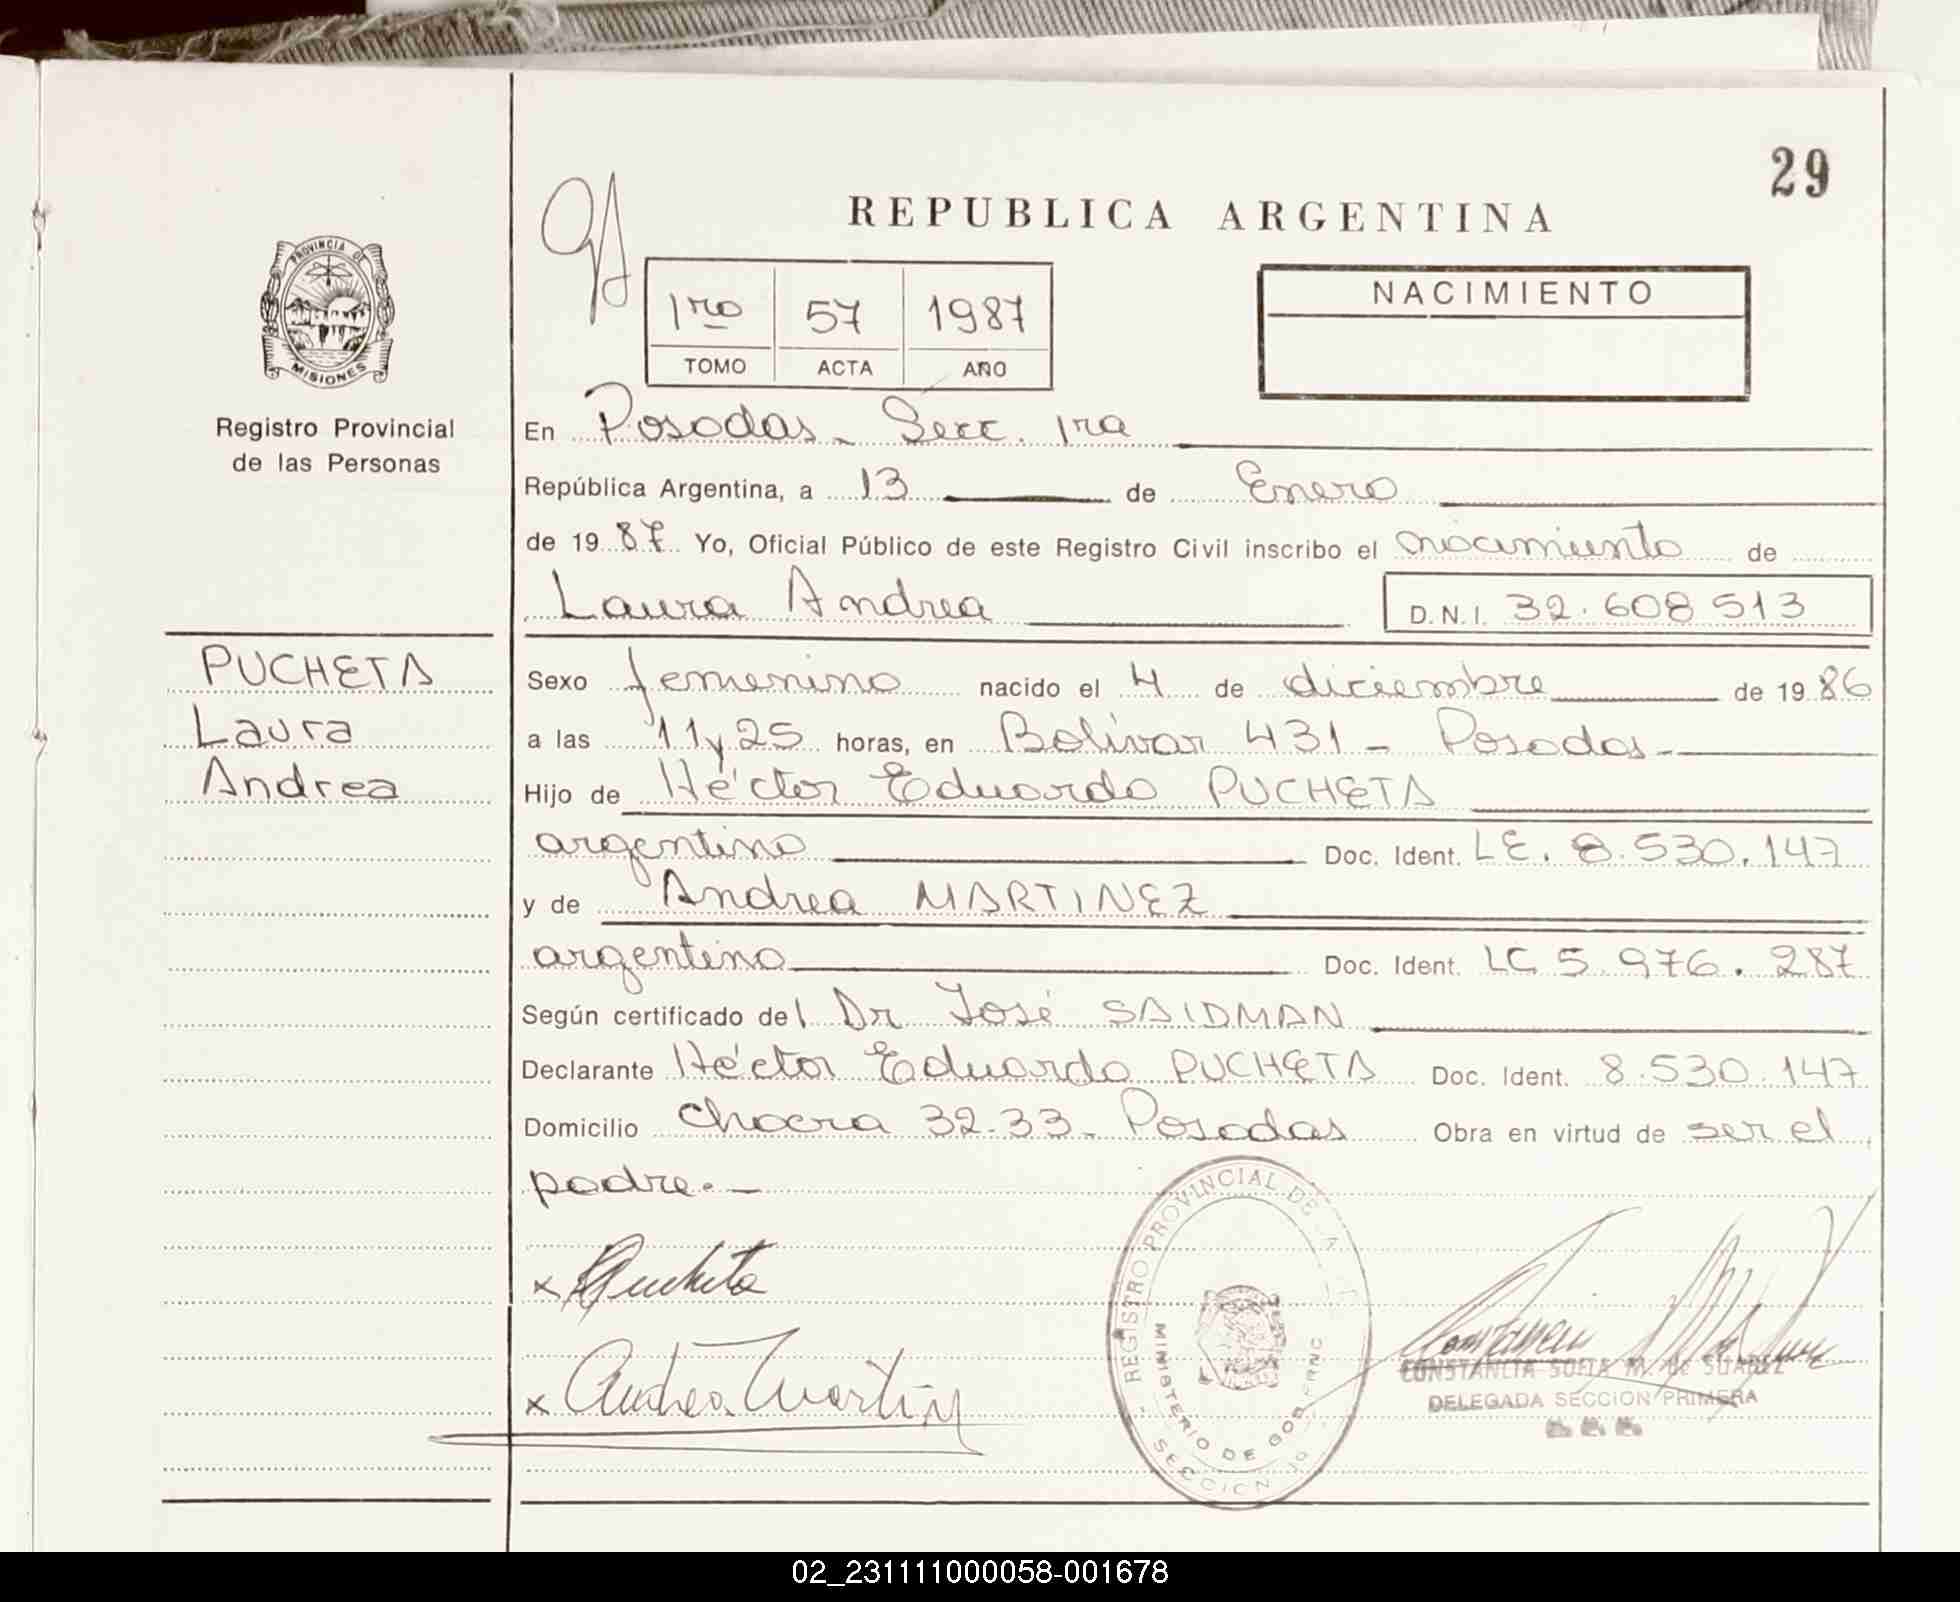 29
REPUBLICA ARGENTINA
PROVINCIA DE
MISIONES
Registro Provincial
de las Personas
1ro 57 1987
TOMO ACTA AÑO
NACIMIENTO
En Posadas - Secc. 1ra
República Argentina, a 13 de Enero
de 1987 Yo, Oficial Público de este Registro Civil inscribo el nacimiento de
Laura Andrea D.N.I. 32.608 513
PUCHETA
Laura
Andrea
Sexo femenino nacido el 4 de diciembre de 1986
a las 11 y 25 horas, en Bolívar 431 - Posadas -
Hijo de Héctor Eduardo PUCHETA
argentino Doc. Ident. LE. 8.530.147
y de Andrea MARTINEZ
argentina Doc. Ident. LC 5.976.287
Según certificado del Dr José SAIDMAN
Declarante Héctor Eduardo PUCHETA Doc. Ident. 8.530.147
Domicilio Chacra 32-33- Posadas Obra en virtud de ser el
padre. -
x Pucheta
x Andrea Martinez
REGISTRO PROVINCIAL DE
MINISTERIO DE GOB
SECCION 1a
CONSTANCIA SOFIA M. de SUAREZ
DELEGADA SECCION PRIMERA
02_231111000058-001678